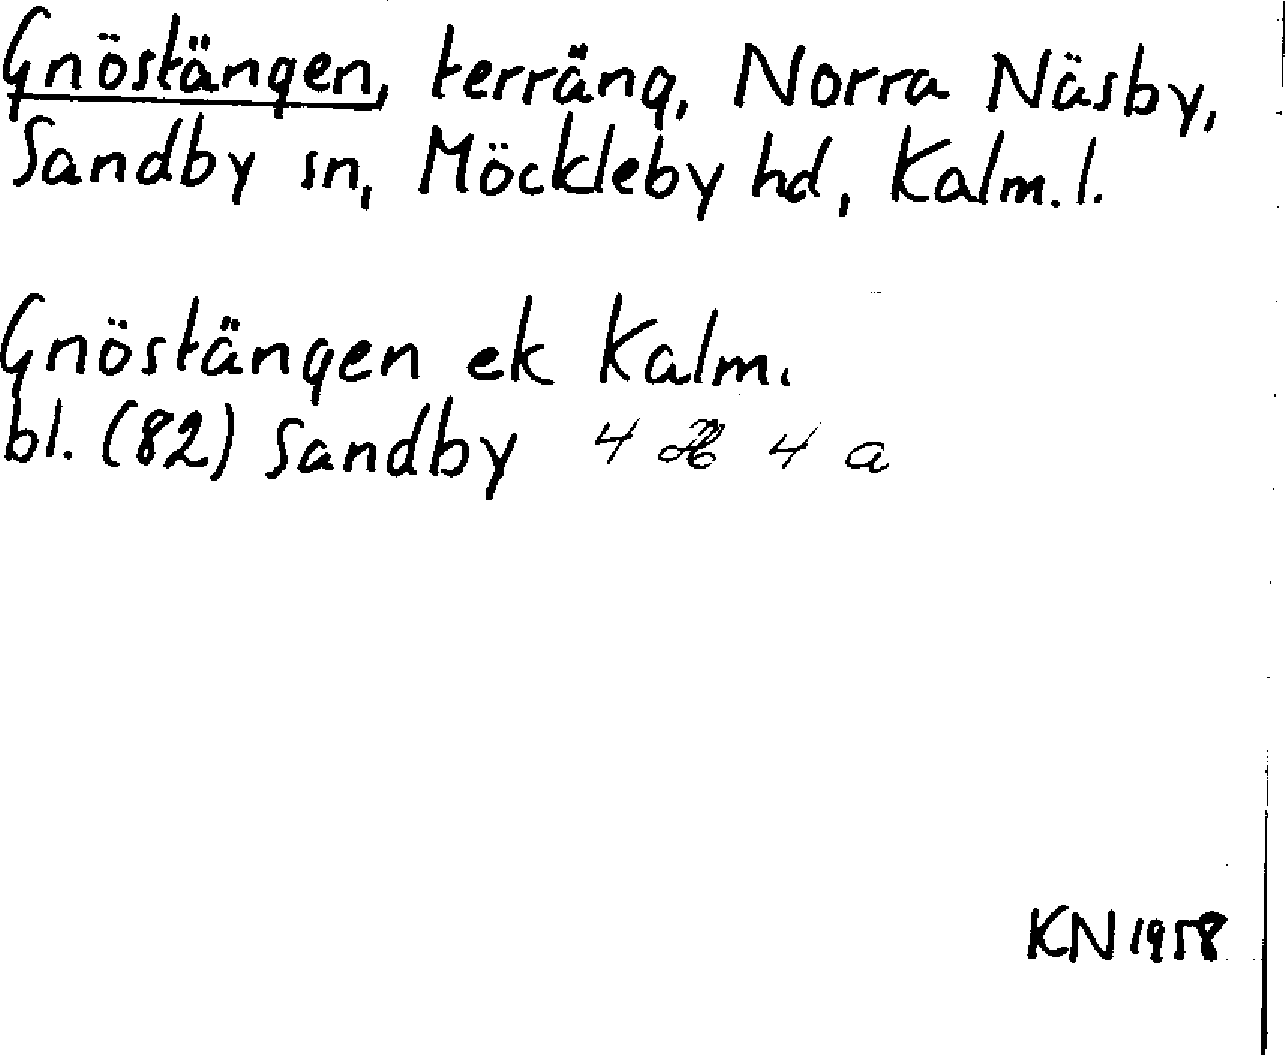 Gnöstängen, terräng, Norra Näsby,
Sandby sn, Möckleby hd, Kalm. l.
Gnöstängen ek Kalm.
bl. (82) Sandby 4 H 4 a
KN 1958